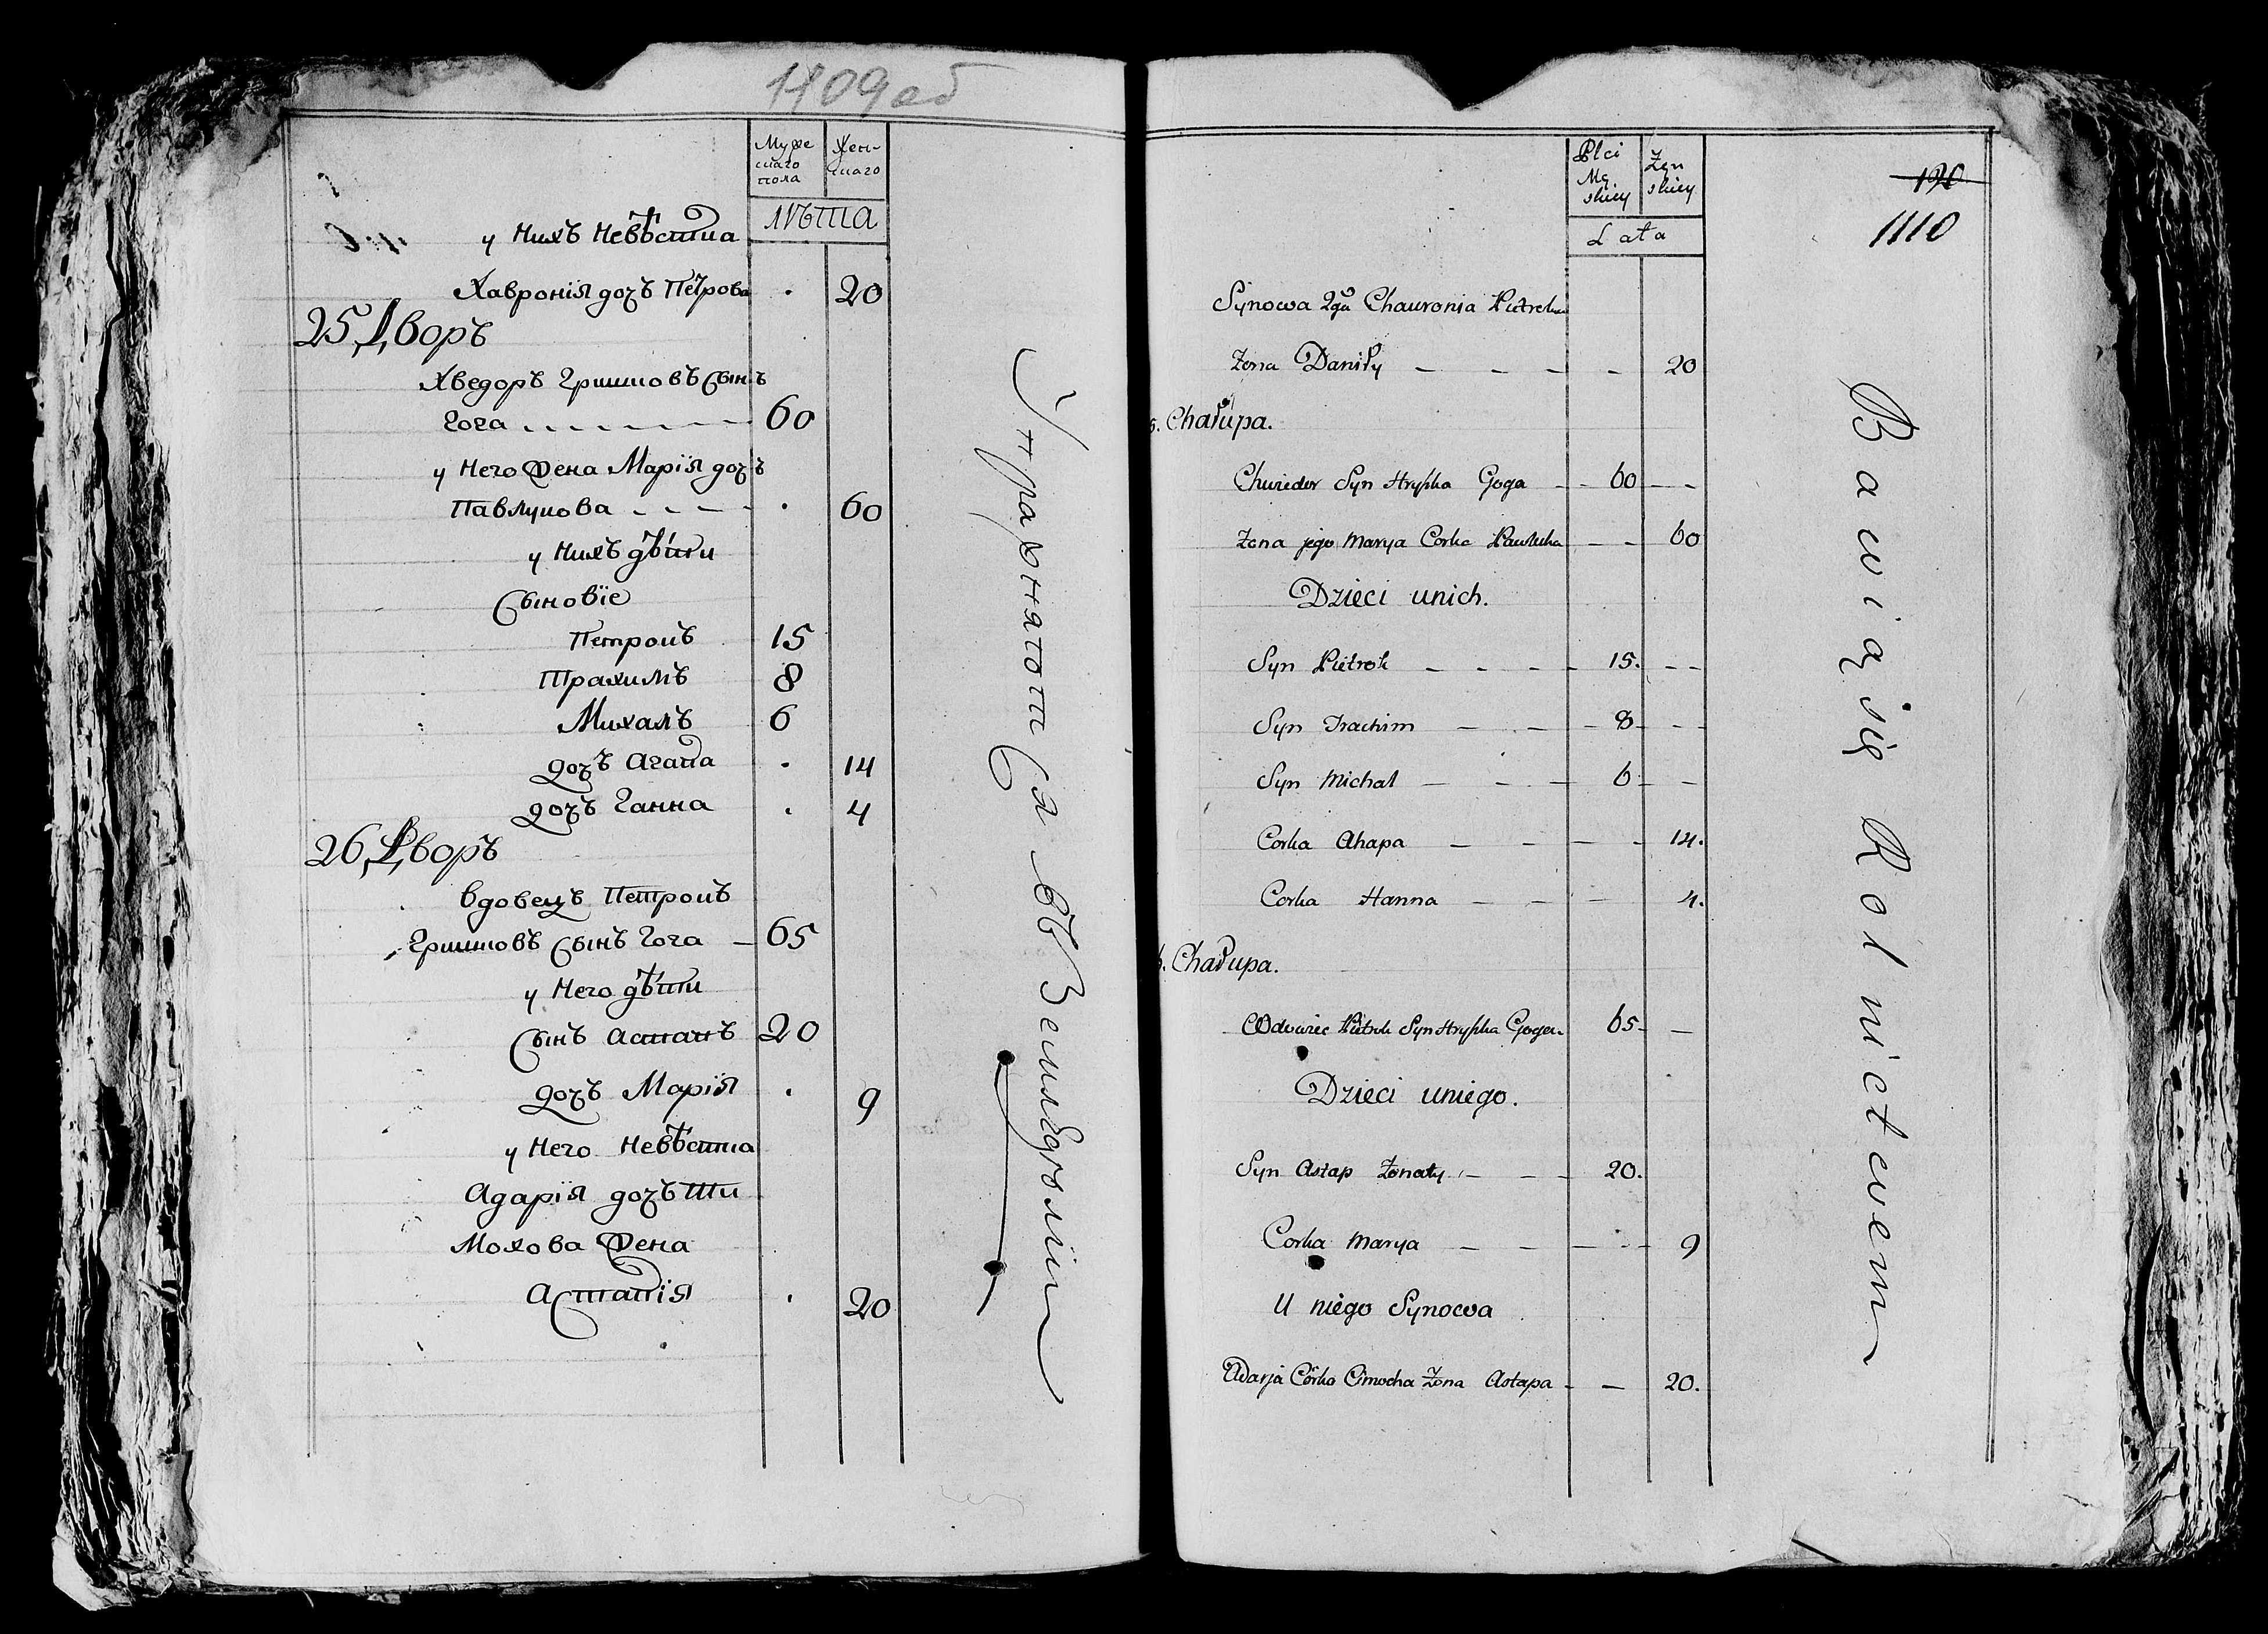 1109об
Муже
скаго
пола
Жен-
скаго
лѣта
у нихъ невѣстка
Хавронія дочъ Петрова . 20
25 Дворъ
Хведоръ Гришковъ сынъ
Гога 60
у него жена Марія дочъ
Павлукова . 60
у нихъ дѣти
Сыновіе
Петрокъ 15
Трахимъ 8
Михалъ 6
дочъ Агапа . 14
дочъ Ганна . 4
26 Дворъ
вдовецъ Петрокъ
Гришковъ сынъ Гога 65
у него дѣти
сынъ Астапъ 20
дочъ Марія . 9
у него невѣстка
Адарія дочъ Ти
мохова жена
Астапія . 20
Упражняются въ земледѣліи
Płci
Mę
skiey
Żeń
skiey
Lata
120
1110
Synowa 2ga Chauronia Pietroka
Żona Daniły - - - - 20
Chałupa.
Chwiedor Syn Hryszka Goga - 60 - -
Żona jego Marya Corka Pawluka - - 60
Dzieci unich.
Syn Pietrok - - - - 15. - -
Syn Trachim - - - 8 - -
Syn Michał - - - 6 - -
Corka Ahapa - - - - 14.
Corka Hanna - - - 4.
Chałupa.
Wdowiec Pietrok Syn Hryszka Goga. 65 -
Dzieci uniego.
Syn Astap Żonaty - - 20.
Corka Marya - - - - 9
U niego Synowa
Adarja Córka Cimocha Żona Astapa - - 20.
Bawią się Rolnictwem